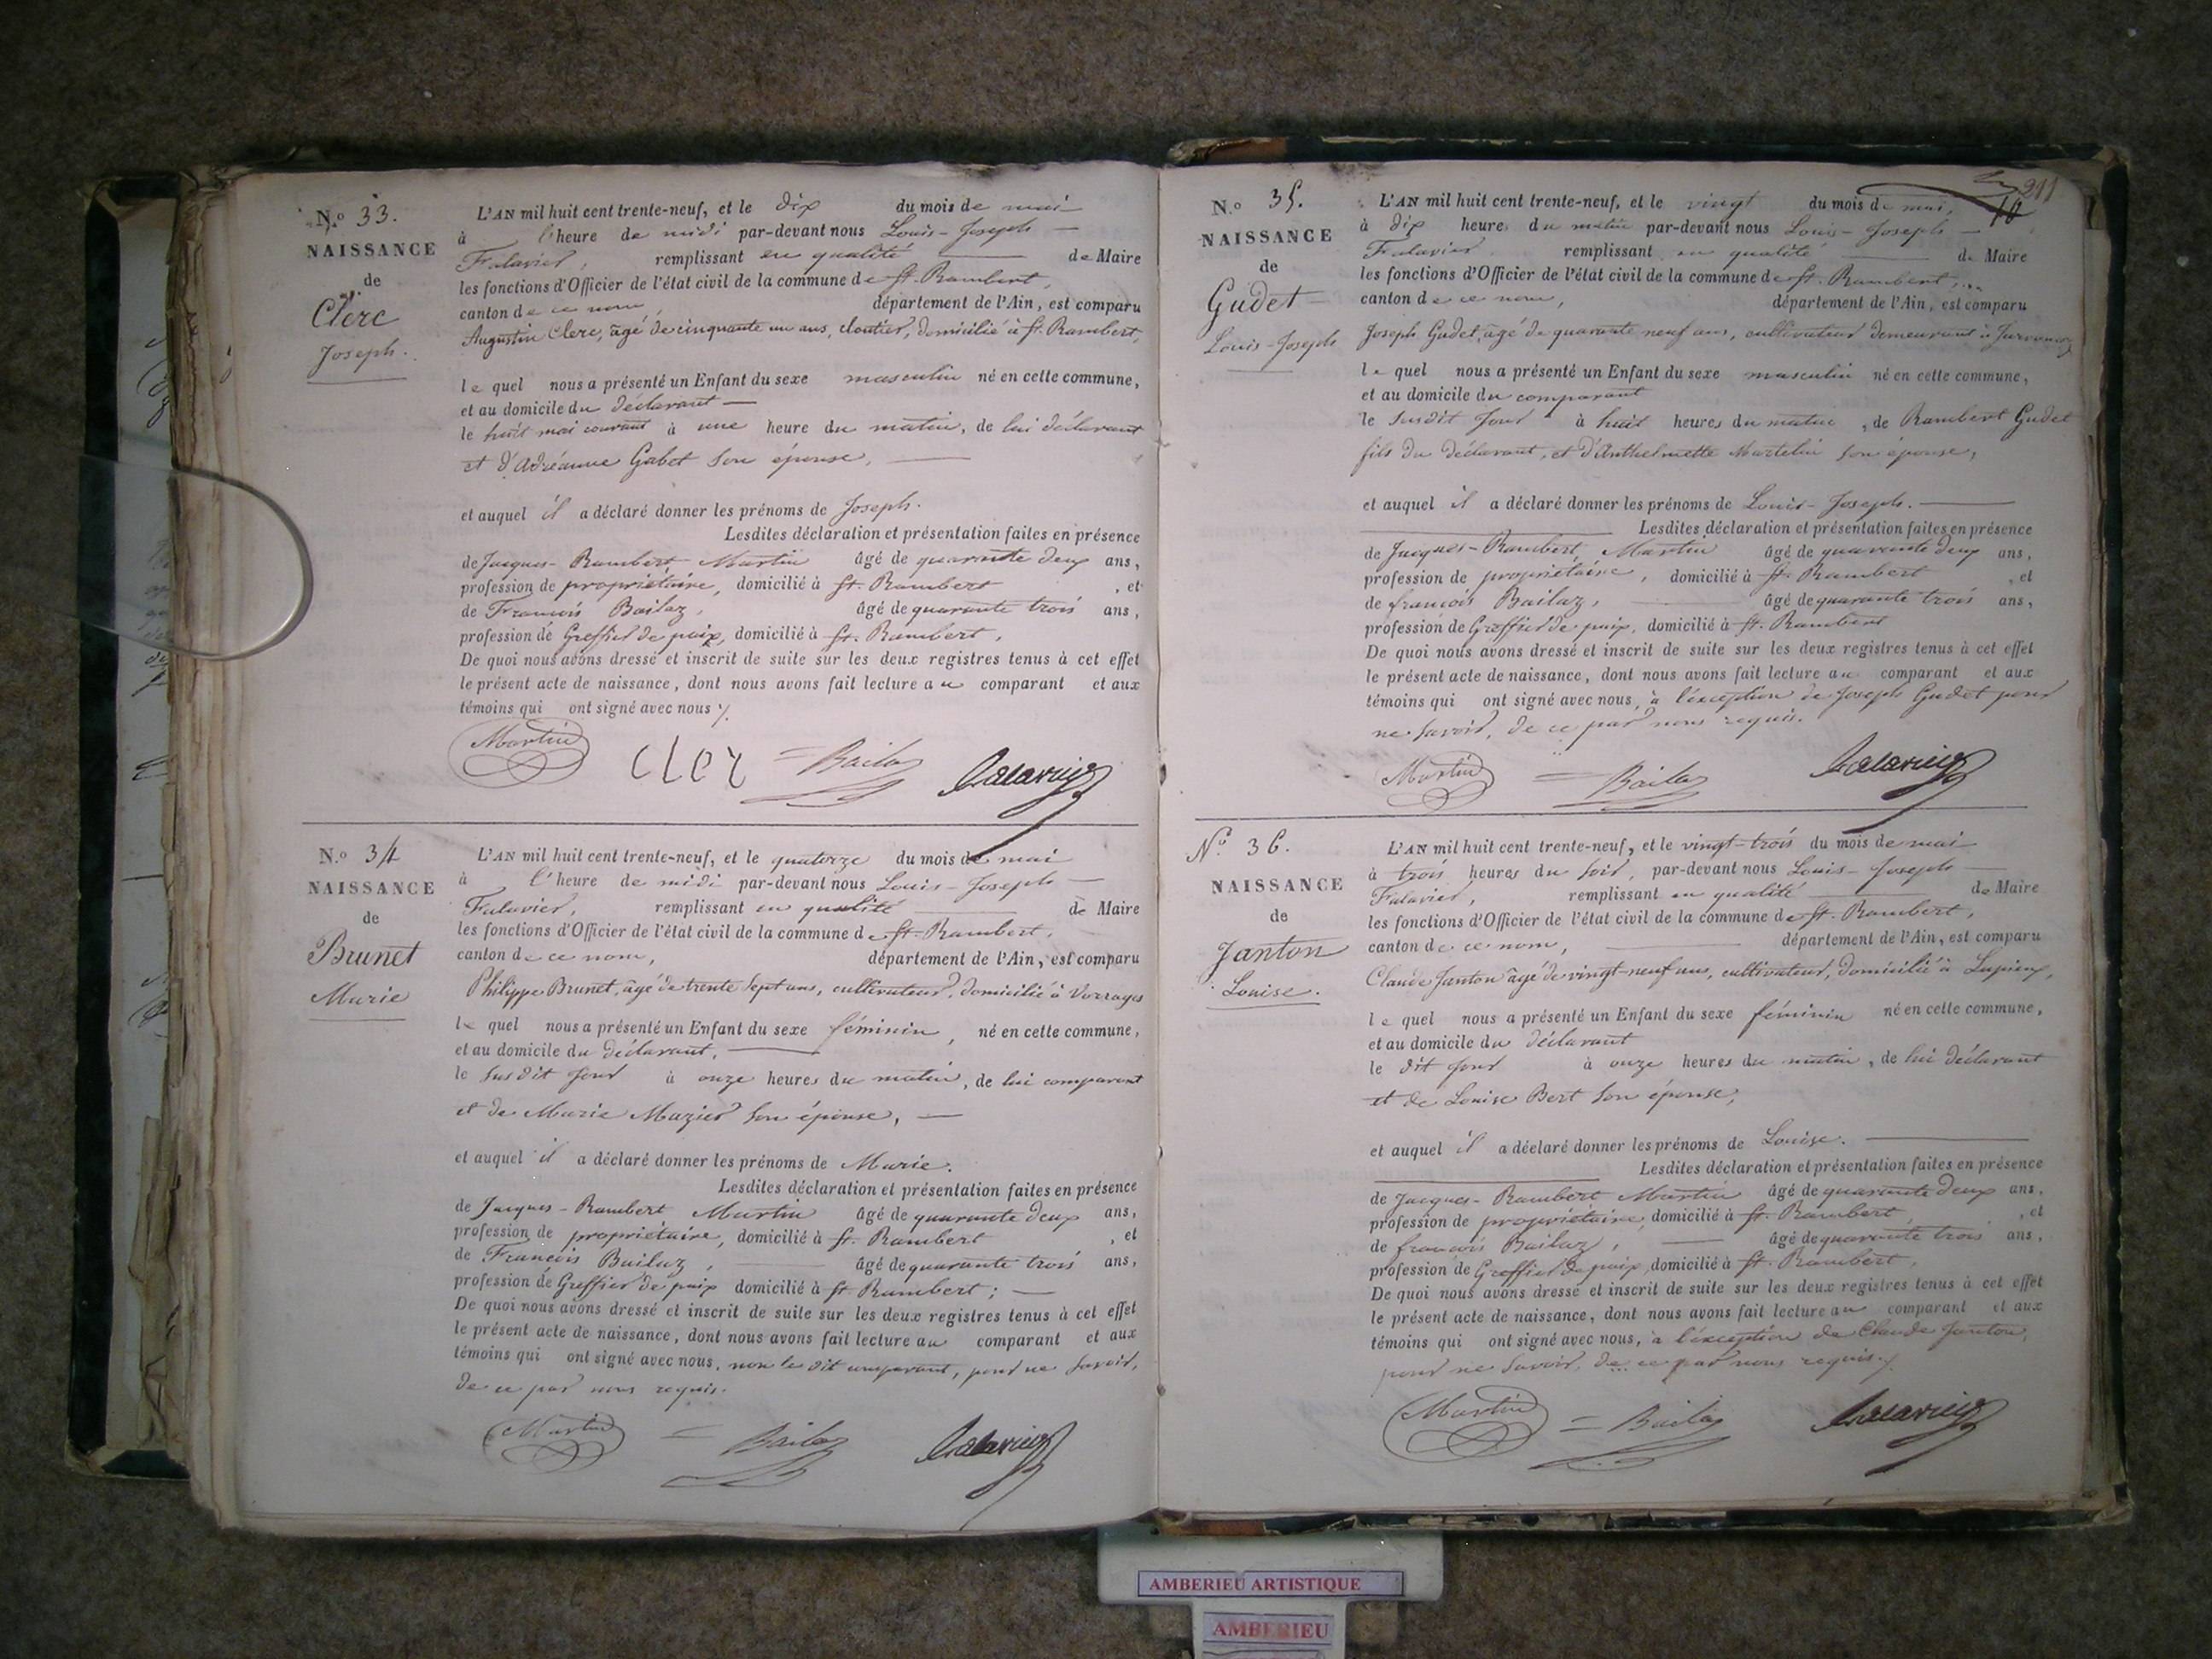 N.º 33.
NAISSANCE
de
Clerc
Joseph.
L'AN mil huit cent trente-neuf, et le dix du mois de mai
à l'heure de midi par-devant nous Louis-Joseph
Falavier, remplissant en qualité de Maire
les fonctions d'Officier de l'état civil de la commune de St. Rambert,
canton de ce nom, département de l'Ain, est comparu
Augustin Clerc, âgé de cinquante un ans, cloutier, domicilié à St. Rambert,
lequel nous a présenté un Enfant du sexe masculin né en cette commune,
et au domicile du déclarant
le huit mai courant à une heure du matin, de lui déclarant
et d'Adréanne Gabet son épouse,
et auquel il a déclaré donner les prénoms de Joseph.
Lesdites déclaration et présentation faites en présence
de Jacques-Rambert Martin âgé de quarante deux ans,
profession de propriétaire, domicilié à St. Rambert, et
de François Bailaz, âgé de quarante trois ans,
profession de Greffier de paix, domicilié à St. Rambert,
De quoi nous avons dressé et inscrit de suite sur les deux registres tenus à cet effet
le présent acte de naissance, dont nous avons fait lecture au comparant et aux
témoins qui ont signé avec nous ⁒
Martin Clerc Bailaz Falavier
N.º 34
NAISSANCE
de
Brunet
Marie
L'AN mil huit cent trente-neuf, et le quatorze du mois de mai
à l'heure de midi par-devant nous Louis-Joseph
Falavier, remplissant en qualité de Maire
les fonctions d'Officier de l'état civil de la commune de St. Rambert,
canton de ce nom, département de l'Ain, est comparu
Philippe Brunet, âgé de trente sept ans, cultivateur, domicilié à Vorrages
lequel nous a présenté un Enfant du sexe féminin, né en cette commune,
et au domicile du déclarant,
le susdit jour à onze heures du matin, de lui comparant
et de Marie Mazier son épouse,
et auquel il a déclaré donner les prénoms de Marie.
Lesdites déclaration et présentation faites en présence
de Jacques-Rambert Martin âgé de quarante deux ans,
profession de propriétaire, domicilié à St. Rambert, et
de François Bailaz, âgé de quarante trois ans,
profession de Greffier de paix domicilié à St. Rambert;
De quoi nous avons dressé et inscrit de suite sur les deux registres tenus à cet effet
le présent acte de naissance, dont nous avons fait lecture au comparant et aux
témoins qui ont signé avec nous, non le dit comparant, pour ne savoir,
de ce par nous requis.
Martin Bailaz Falavier
211
N.º 35.
NAISSANCE
de
Gudet
Louis-Joseph
L'AN mil huit cent trente-neuf, et le vingt du mois de mai,
à dix heures du matin par-devant nous Louis-Joseph
Falavier remplissant en qualité de Maire
les fonctions d'Officier de l'état civil de la commune de St. Rambert,
canton de ce nom, département de l'Ain, est comparu
Joseph Gudet, âgé de quarante neuf ans, cultivateur demeurant à
lequel nous a présenté un Enfant du sexe masculin né en cette commune,
et au domicile du comparant
le susdit jour à huit heures du matin, de Rambert Gudet
fils du déclarant, et d'Anthelmette Martelin son épouse,
et auquel il a déclaré donner les prénoms de Louis-Joseph.
Lesdites déclaration et présentation faites en présence
de Jacques-Rambert Martin âgé de quarante deux ans,
profession de propriétaire, domicilié à St. Rambert, et
de françois Bailaz, âgé de quarante trois ans,
profession de Greffier de paix, domicilié à St. Rambert
De quoi nous avons dressé et inscrit de suite sur les deux registres tenus à cet effet
le présent acte de naissance, dont nous avons fait lecture au comparant et aux
témoins qui ont signé avec nous, à l'exception de Joseph Gudet pour
ne savoir, de ce par nous requis.
Martin Bailaz Falavier
N.º 36.
NAISSANCE
de
Janton
Louise.
L'AN mil huit cent trente-neuf, et le vingt-trois du mois de mai
à trois heures du soir, par-devant nous Louis-Joseph
Falavier, remplissant en qualité de Maire
les fonctions d'Officier de l'état civil de la commune de St. Rambert,
canton de ce nom, département de l'Ain, est comparu
Claude Janton âgé de vingt-neuf ans, cultivateur, domicilié à Lupieux,
lequel nous a présenté un Enfant du sexe féminin né en cette commune,
et au domicile du déclarant
le dit jour à onze heures du matin, de lui déclarant
et de Louise Bert son épouse,
et auquel il a déclaré donner les prénoms de Louise.
Lesdites déclaration et présentation faites en présence
de Jacques-Rambert Martin âgé de quarante deux ans,
profession de propriétaire, domicilié à St. Rambert, et
de françois Bailaz, âgé de quarante trois ans,
profession de Greffier de paix, domicilié à St. Rambert,
De quoi nous avons dressé et inscrit de suite sur les deux registres tenus à cet effet
le présent acte de naissance, dont nous avons fait lecture au comparant et aux
témoins qui ont signé avec nous, à l'exception de Claude Janton,
pour ne savoir, de ce par nous requis ⁒
Martin Bailaz Falavier
AMBERIEU ARTISTIQUE
AMBERIEU